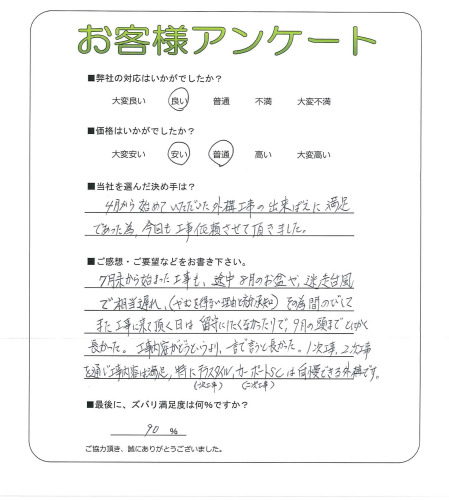 お客様アンケート
■弊社の対応はいかがでしたか?
大変良い 良い 普通 不満 大変不満
■価格はいかがでしたか?
大変安い 安い 普通 高い 大変高い
■当社を選んだ決め手は?
4月から始めていただいた外構工事の出来ばえに満足
であった為、今回も工事依頼させて頂きました。
■ご感想・ご要望などをお書き下さい。
7月末から始まった工事も、途中8月のお盆や、迷走台風
で相当遅れ、(やむを得ない理由と承知)その為間のびして
また工事に来て頂く日は留守にしたくなかったりで、9月の頭までとにかく
長かった。工事内容がどうというより、一言で言うと長かった。1次工事、2次工事
を通し工事内容は満足、特にテラスタイル、カーポートSCは自慢できる外構です。
(一次工事) (二次工事)
■最後に、ズバリ満足度は何%ですか?
90 %
ご協力頂き、誠にありがとうございました。